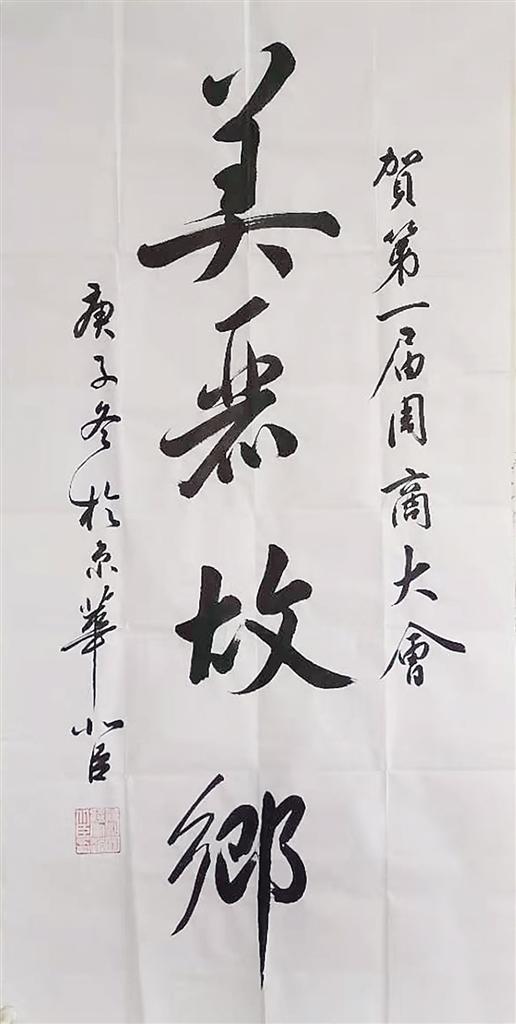 賀第一届周商大會
美故鄉
庚子冬於京華小臣